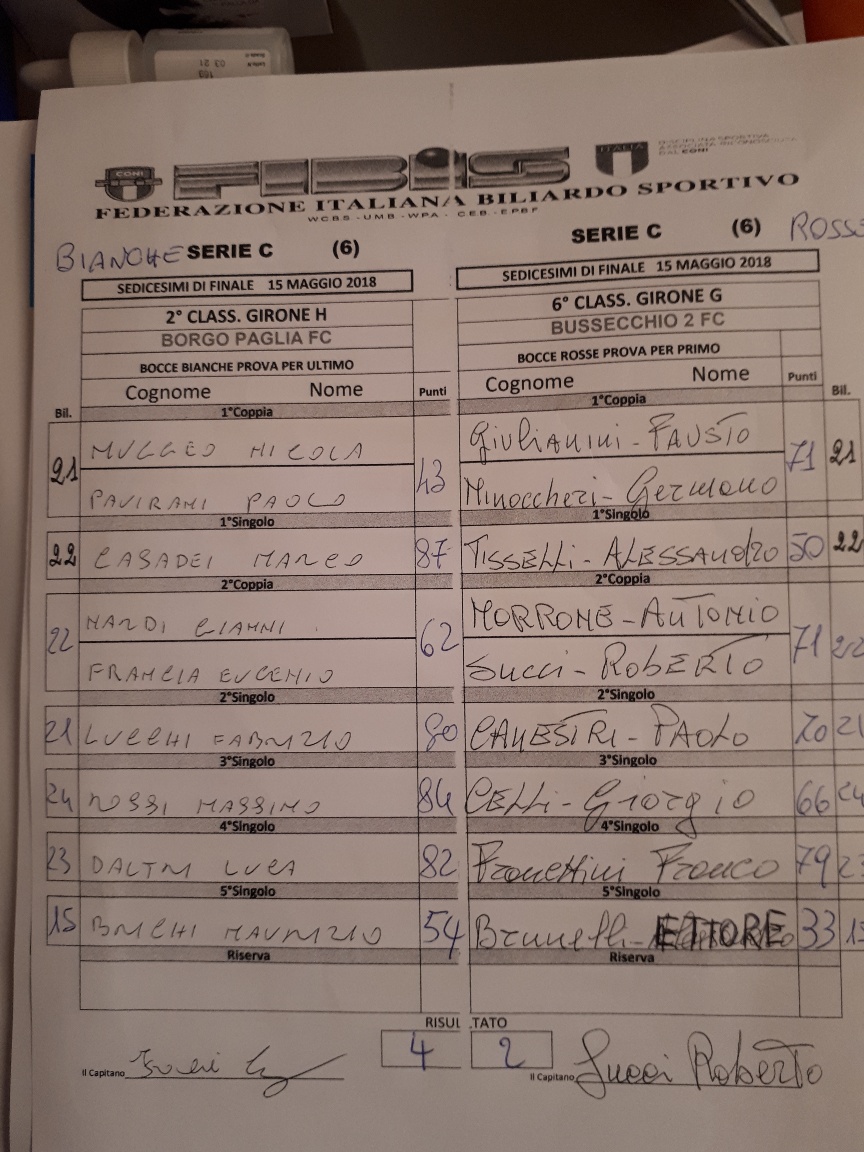 FIBiS
CONI
ITALIA
FEDERAZIONE ITALIANA BILIARDO SPORTIVO
WCBS - UMB - WPA - CEB - EPBF
BIANCHE SERIE C (6)
SEDICESIMI DI FINALE 15 MAGGIO 2018
2° CLASS. GIRONE H
BORGO PAGLIA FC
BOCCE BIANCHE PROVA PER ULTIMO
Cognome Nome Punti
Bil. 1°Coppia
21 MUGGEO NICOLA 43
PAVIRANI PAOLO
1°Singolo
22 CASADEI MARCO 87
2°Coppia
22 NARDI GIANNI 62
FRANCIA EUGENIO
2°Singolo
21 LUCCHI FABRIZIO 80
3°Singolo
24 ROSSI MASSIMO 84
4°Singolo
23 DALTRI LUCA 82
5°Singolo
15 BRICHI MAURIZIO 54
Riserva
SERIE C (6) ROSSE
SEDICESIMI DI FINALE 15 MAGGIO 2018
6° CLASS. GIRONE G
BUSSECCHIO 2 FC
BOCCE ROSSE PROVA PER PRIMO
Cognome Nome Punti Bil.
1°Coppia
Giulianini - FAUSTO 71 21
Minoccheri - Germano
1°Singolo
TISSELLi - ALESSANDRO 50 22
2°Coppia
MORRONE - ANTONIO 71 22
Succi - ROBERTO
2°Singolo
CANESTRI - PAOLO 70 21
3°Singolo
CELLi - Giorgio 66 24
4°Singolo
Franettini Franco 79 23
5°Singolo
Brunelli - ETTORE 33 15
Riserva
RISULTATO
4 2
Il Capitano
Il Capitano Succi Roberto